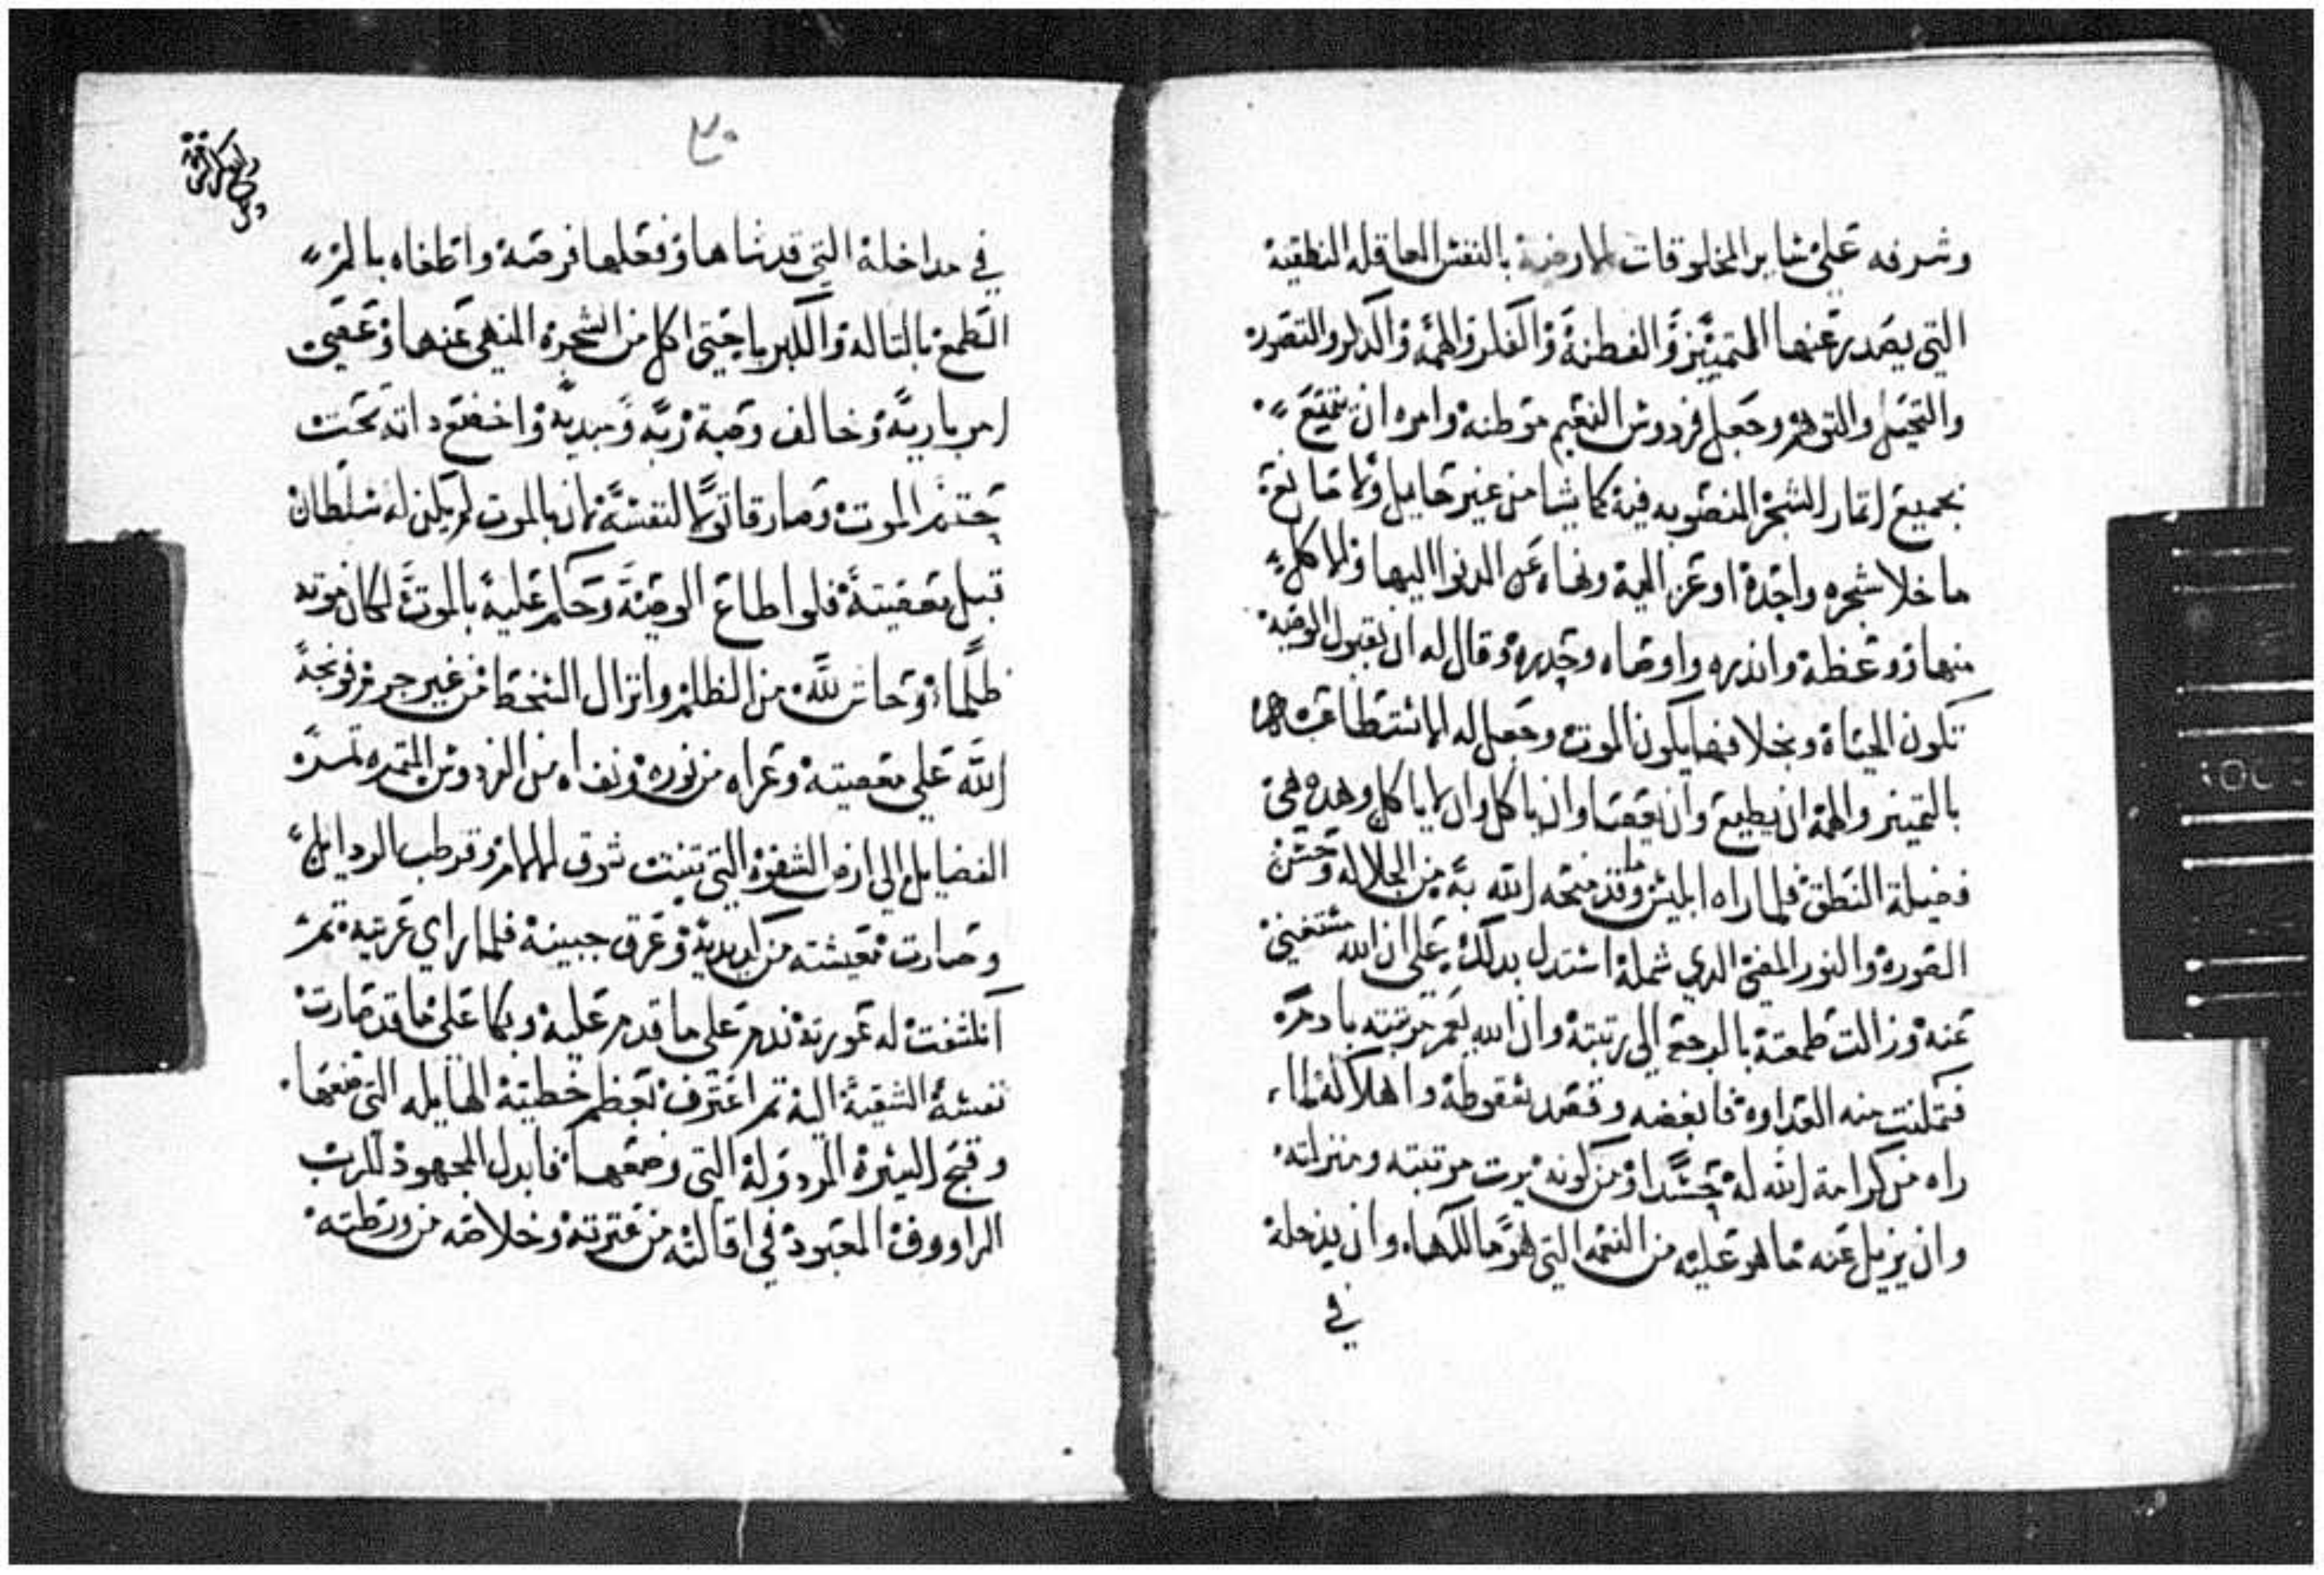 وشرفه على ساير المخلوقات الارضية بالنفس العاقله النطقية
التي يصدر عنها التمييز والفطنة والفكر والهمة والذكر والتصور
والتخيل والتوهم وجعل فردوس النعيم موطنه وامره ان يتمتع
بجميع اثمار الشجر المنصوبه فيه كما يشا من غير حايل ولا مانعة
ما خلا شجره واحدة اوعز اليه ونهاه عن الدنوا اليها ولا اكل
منها ووعظه وانذره واوصاه وحدره وقال له ان بقبول الوصية
تكون الحياة وبخلافها يكون الموت وجعل له الاستطاعة
بالتمييز والهمه ان يطيع وان يعصا وان ياكل وان لا ياكل وهده هي
فضيلة النطق فلما راه ابليس وما قد منحه الله به من الجلاله وحسن
الصورة والنور المضي الدي شمله استدل بدلك على ان الله مستغني
عنه وزالت طمعته بالرجعه الي رتبته وان الله يعمر مرتبته بادم
فتمكنت منه العداوة فابغضه وقصد سقوطه واهلاكه لما
راه من كرامة الله له حسدا ومن كونه يرت مرتبته ومنزلته
وان يزيل عنه ما هو عليه من النعمه التي هو مالكها وان يدخله
في
٣٠
في مداخلة التي قد ناها وفعلها فرصة واطغاه بالمر
الطمع بالتاله والكبريا حتي اكل من الشجرة المنهي عنها وعصي
امر باريه وخالف وصية ربه ومبديه واخضع داته تحت
حتم الموت وصار قاتولا لنفسه لان الموت لم يكن له سلطان
قبل معصيته فلو اطاع الوصية وحكم عليه بالموت لكان موته
ظلما وحاش لله من الظلم وانزال السخط من غير جرم فوبخه
الله على معصيته وعراه من نوره ونفاه من الفردوس المثمره تمره
الفضايل الى ارض الشقوه التي تنبت شوك الالام وقرطب الردايل
وصارت معيشته من كد يديه وعرق جبينه فلما راي عريته
انكشفت له عورته ندم على ما قدم عليه وبكا على ما قد صارت
نفسه الشقية اليه تم اعترف بعظم خطيته الهايله التي صنعها
وقبح السيرة المردولة التي وضعها فابدل المجهود للرب
الراووف المعبود في اقالته من عترته وخلاصه من ورطته